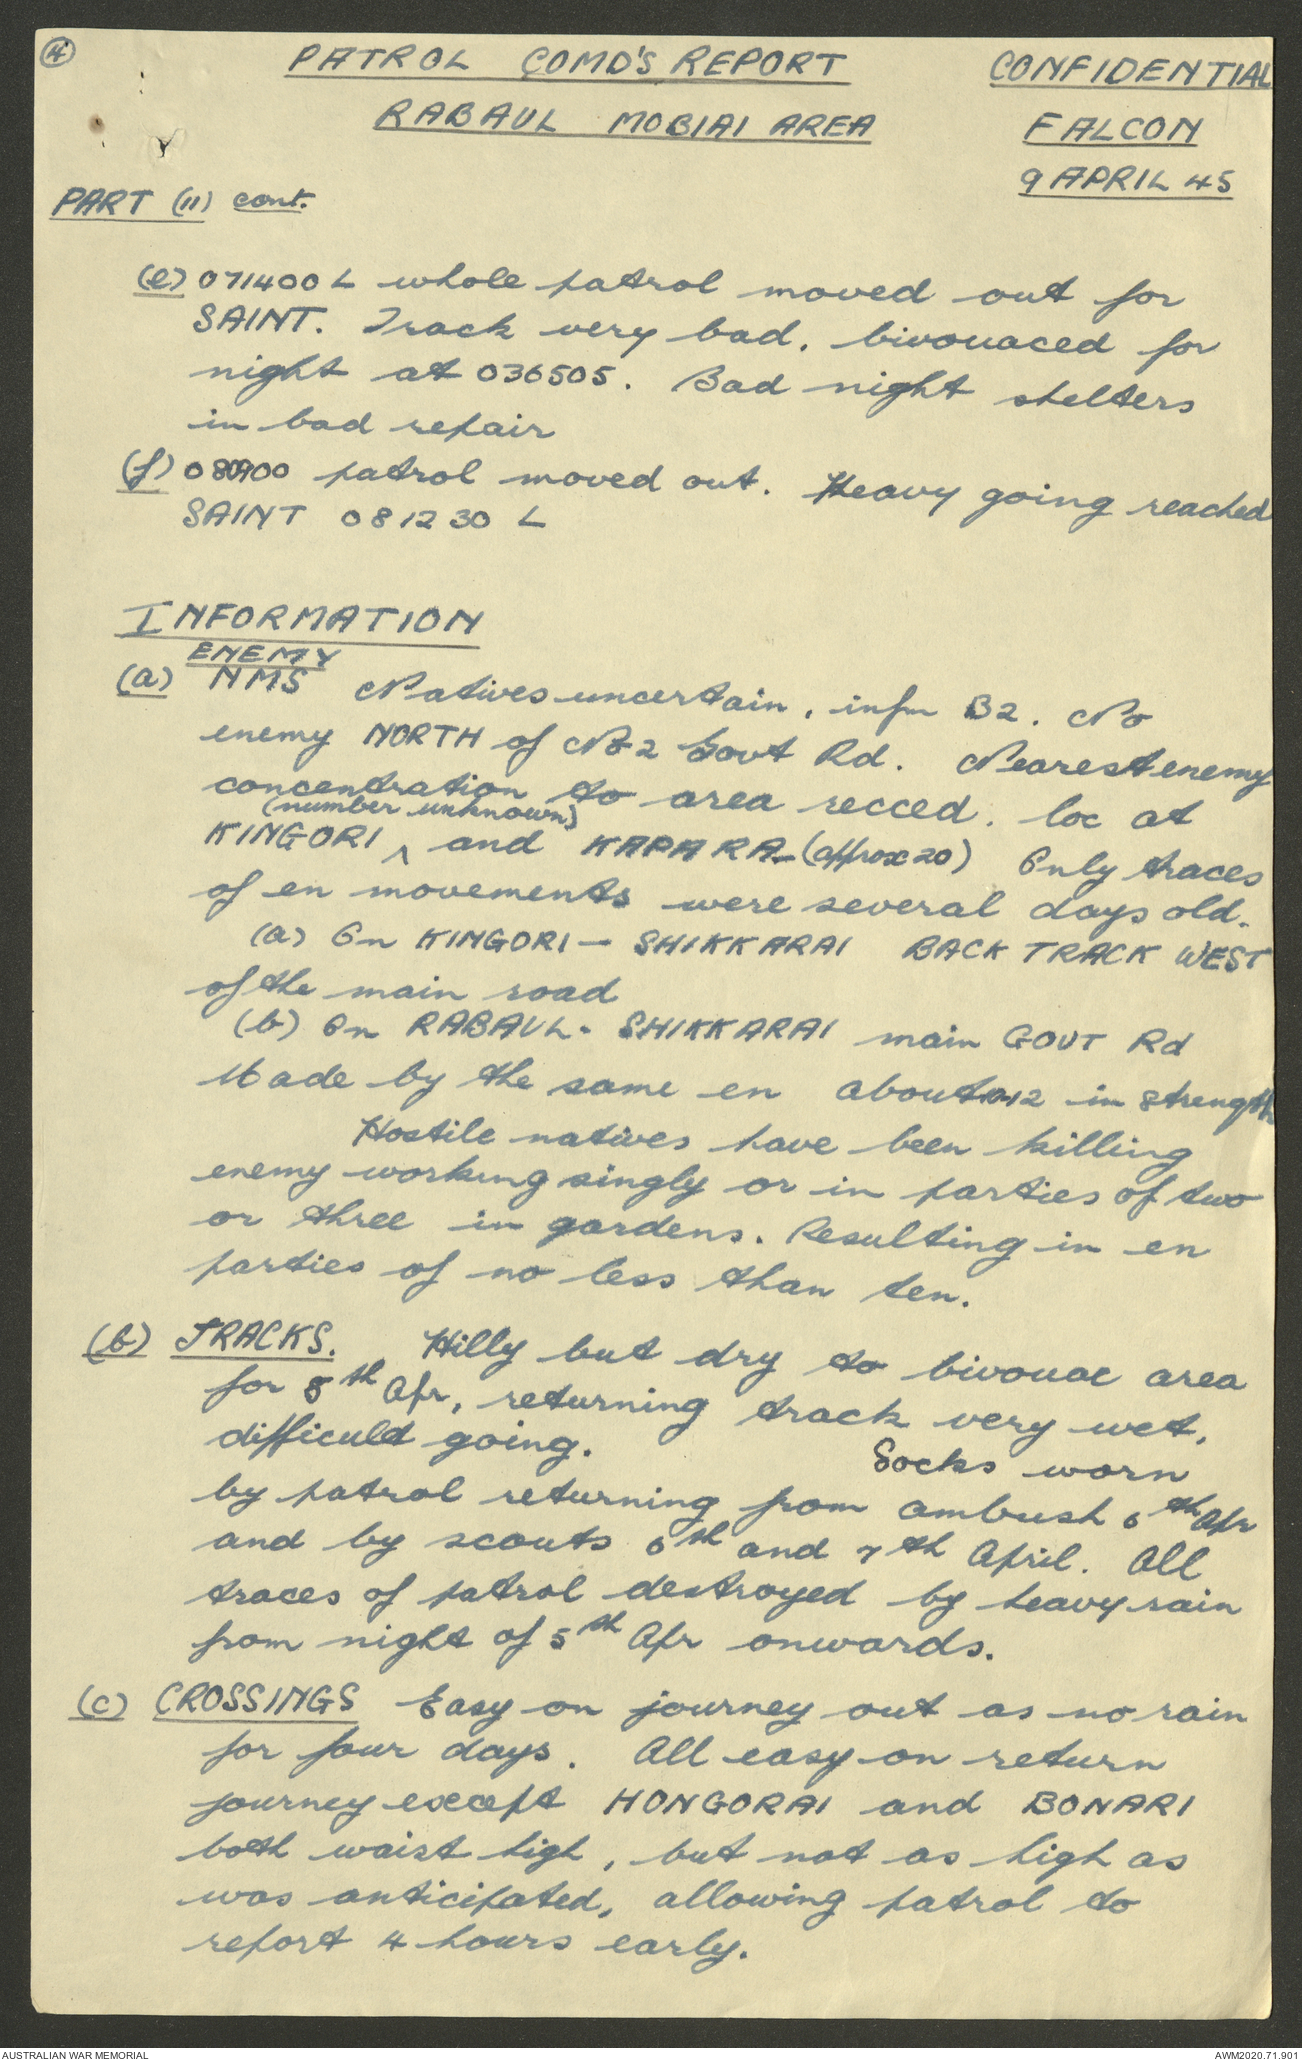 4
PATROL COMD'S REPORT CONFIDENTIAL
RABAUL MOBIAI AREA FALCON
9 APRIL 45
PART (11) cont.
(e) 071400 L whole patrol moved out for
SAINT. Track very bad. bivouaced for
night at 036505. Bad night shelters
in bad repair
(f) 080900 patrol moved out. Heavy going reached
SAINT 081230 L
INFORMATION
ENEMY
(a) NMS Natives uncertain, infm B2. No
enemy NORTH of No 2 Govt Rd. Nearest enemy
concentration to area recced. loc at
(number unknown)
KINGORI ^ and KAPARA - (approx 20) Only traces
of en movements were several days old.
(a) On KINGORI - SHIKKARAI BACK TRACK WEST
of the main road
(b) On RABAUL - SHIKKARAI main GOVT Rd
Made by the same en about 10-12 in strength
Hostile natives have been killing
enemy working singly or in parties of two
or three in gardens. Resulting in en
parties of no less than ten.
(b) TRACKS. Hilly but dry to bivouac area
for 5th Apr, returning track very wet,
difficult going.
Socks worn
by patrol returning from ambush 6th Apr
and by scouts 6th and 7th April. All
traces of patrol destroyed by heavy rain
from night of 5th Apr onwards.
(c) CROSSINGS Easy on journey out as no rain
for four days. All easy on return
journey except HONGORAI and BONARI
both waist high, but not as high as
was anticipated, allowing patrol to
report 4 hours early.
AUSTRALIAN WAR MEMORIAL AWM2020.71.901